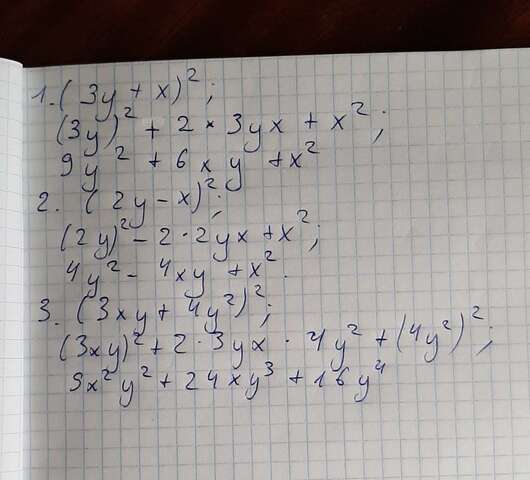 1. (3y + x)²;
(3y)² + 2 * 3yx + x²;
9y² + 6xy + x²
2. (2y - x)²;
(2y)² - 2 · 2yx + x²;
4y² - 4xy + x².
3. (3xy + 4y²)²;
(3xy)² + 2 · 3yx · 4y² + (4y²)²;
9x²y² + 24xy³ + 16y⁴